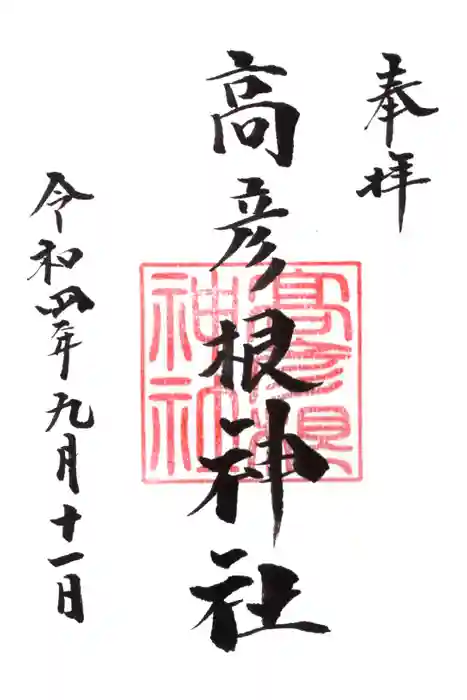 奉拝
高彦根神社
高彦根
神社
令和四年九月十一日